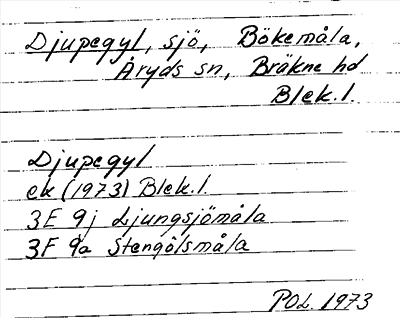 Djupegyl, sjö, Bökemåla,
Åryds sn, Bräkne hd
Blek.l.
Djupegyl
ek (1973) Blek.l.
3E 9j Ljungsjömåla
3F 9a Stengölsmåla
POL. 1973